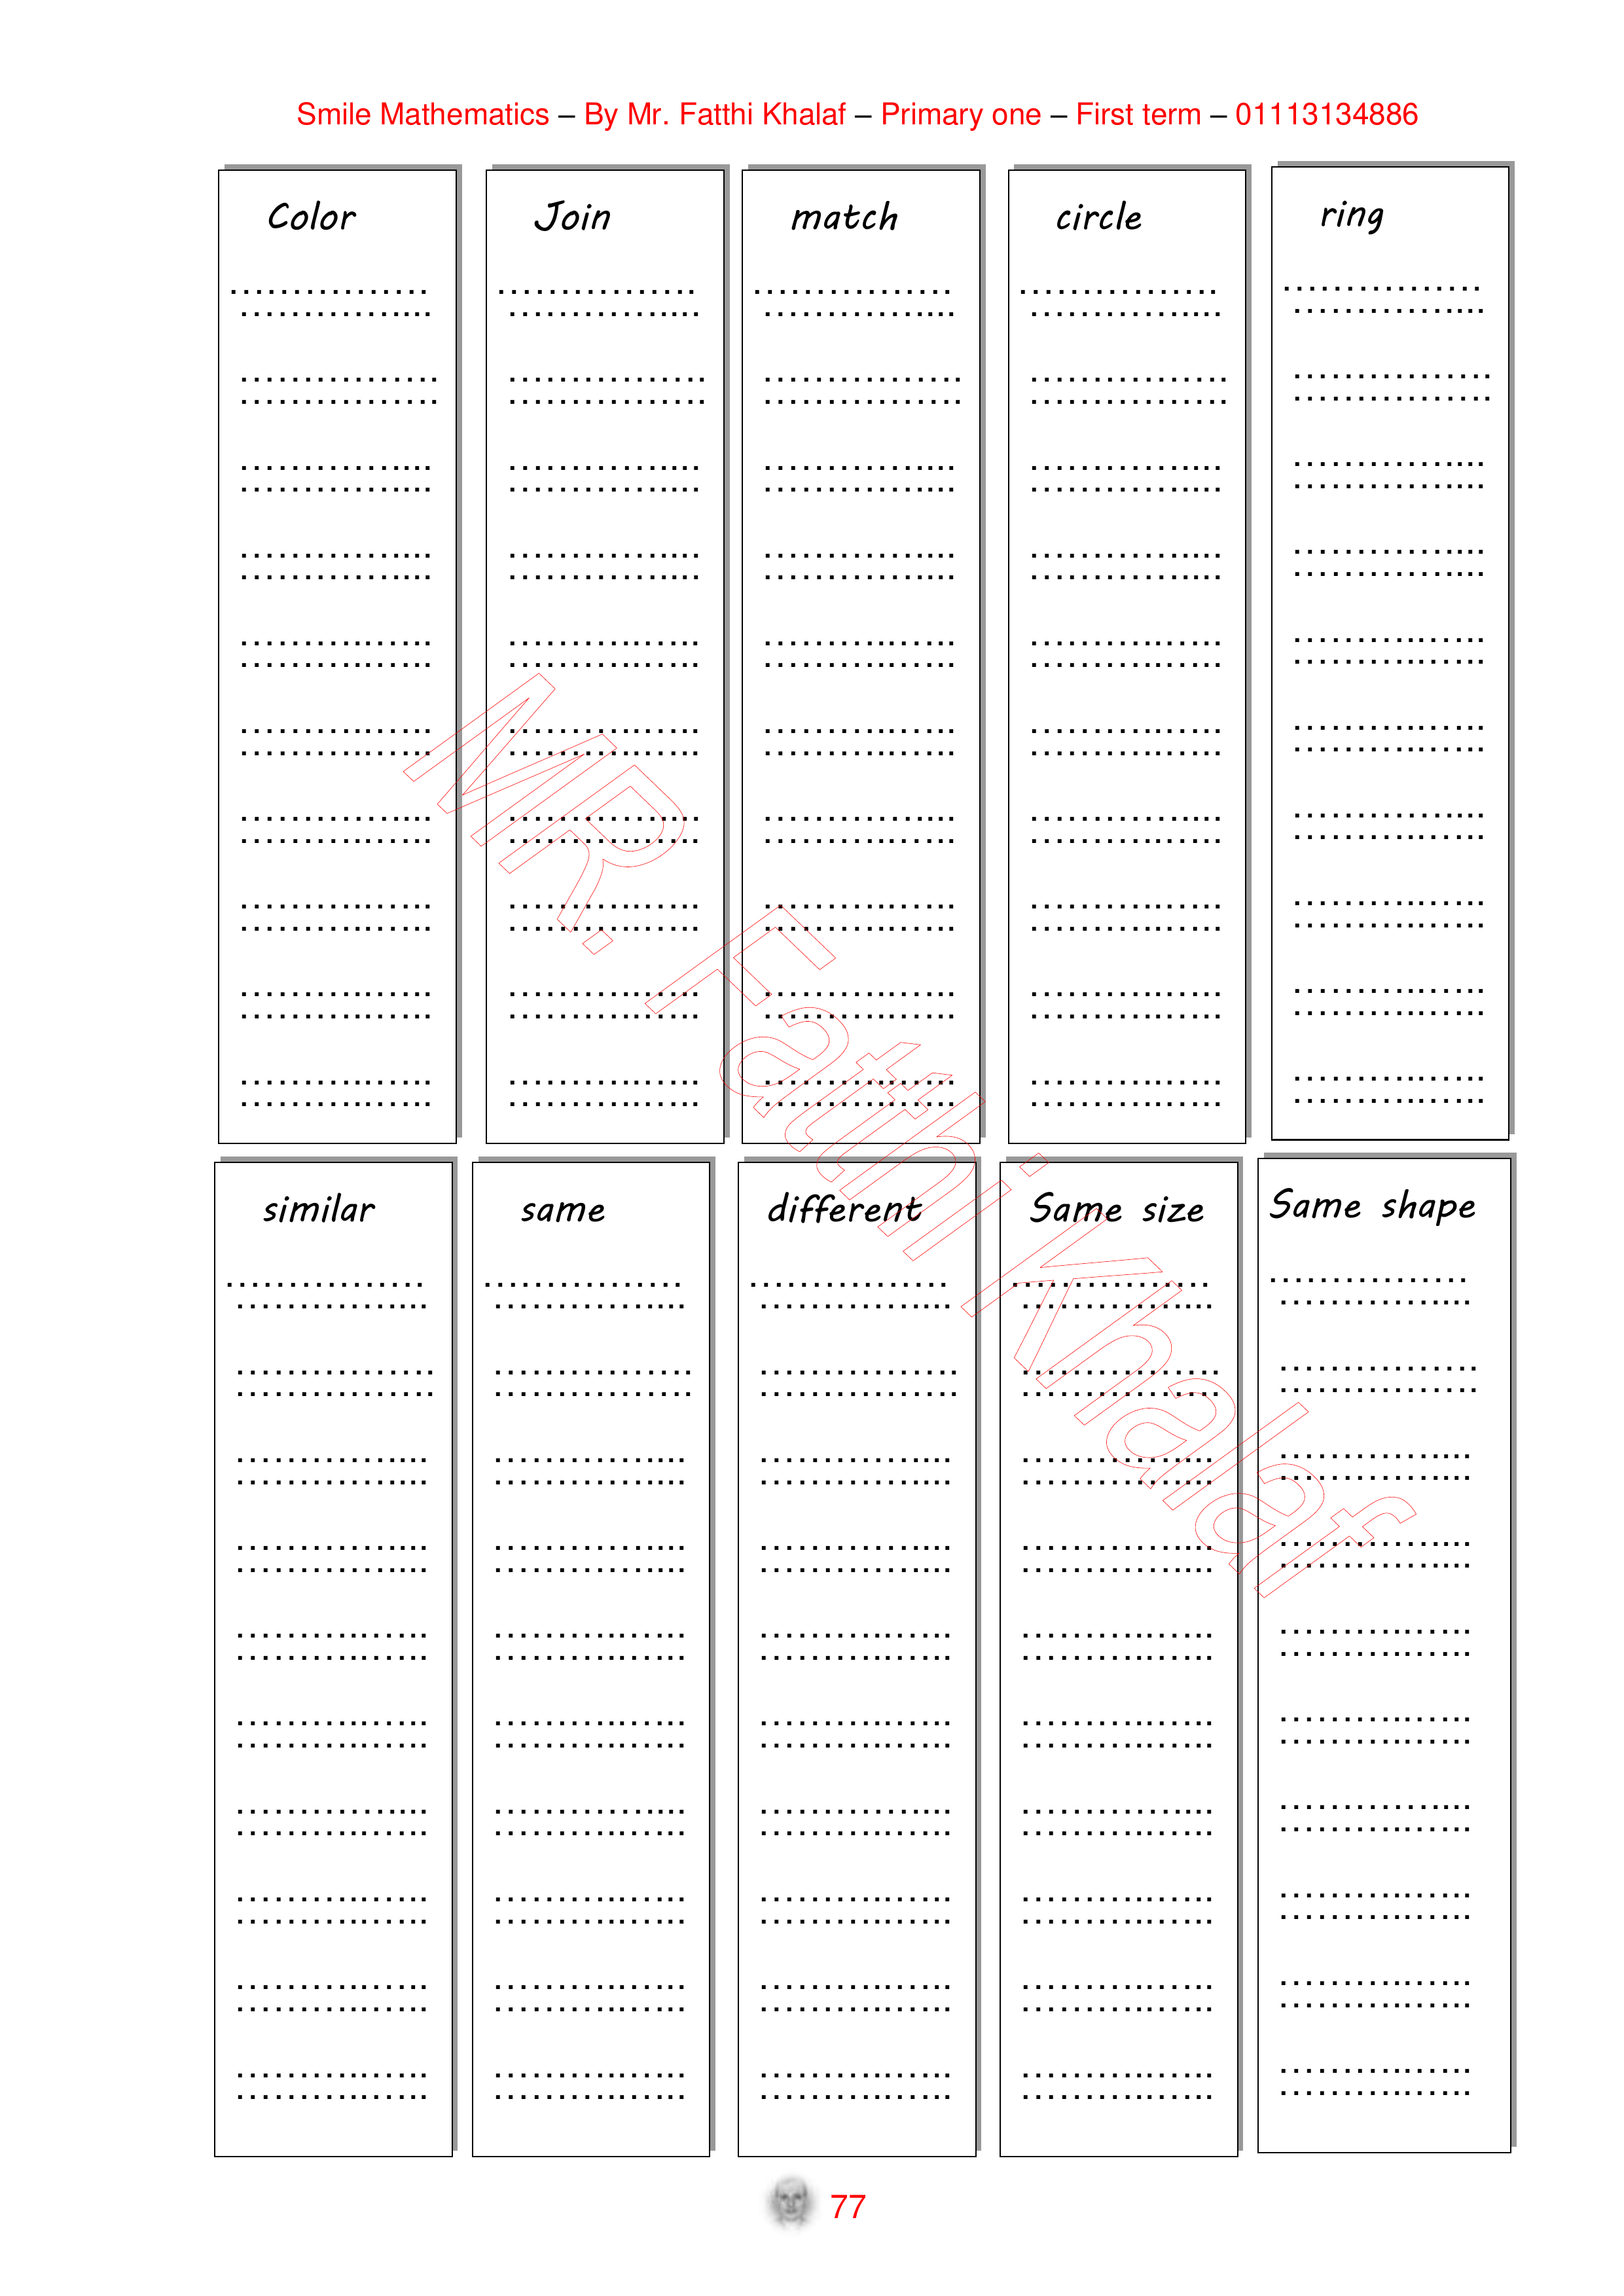 Smile Mathematics – By Mr. Fatthi Khalaf – Primary one – First term – 01113134886
Color Join match circle ring
similar same different Same size Same shape
MR. Fatthi Khalaf
77